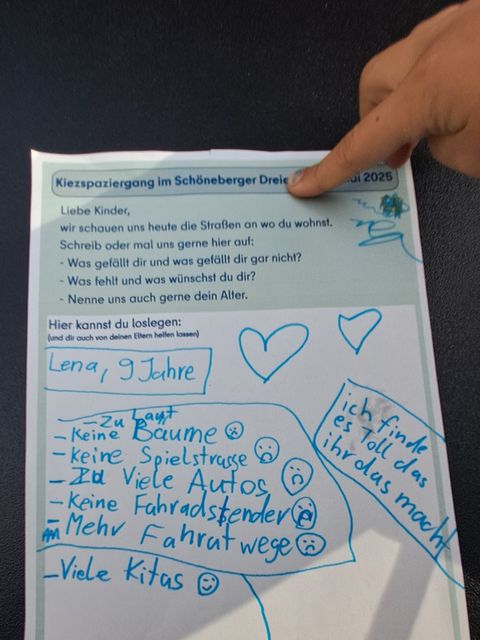 Kiezspaziergang im Schöneberger 2025
Liebe Kinder,
wir schauen uns heute die Straßen an wo du wohnst.
Schreib oder mal uns gerne hier auf:
- Was gefällt dir und was gefällt dir gar nicht?
- Was fehlt und was wünschst du dir?
- Nenne uns auch gerne dein Alter.
Hier kannst du loslegen:
(und dir auch von deinen Eltern helfen lassen)
Lena, 9 Jahre
- Zu Laut
- Keine Bäume
- keine Spielstrasse
- Zu Viele Autos
- Keine Fahradstender
- Mehr Fahrat wege
- Viele Kitas
ich finde
es Toll das
ihr das macht